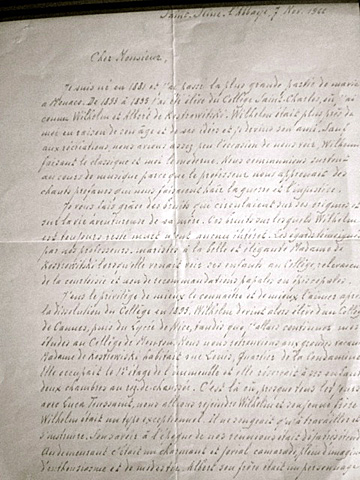 Saint-Seine-l'Abbaye, 7 Nov. 1955
Cher Monsieur,
Je suis né en 1881 et j'ai passé la plus grande partie de ma vie
à Monaco. De 1893 à 1895 j'ai été élève du Collège Saint-Charles, où j'ai
connu Wilhelm et Albert de Kostrowitzki. Wilhelm était plus près de
moi en raison de son âge et de ses idées et je devins son ami. Sauf
aux récréations, nous avions assez peu l'occasion de nous voir, Wilhelm
faisant le classique et moi le moderne. Nous communions surtout
au cours de musique parce que le professeur nous apprenait des
chants profanes qui nous faisaient haïr la guerre et l'injustice.
Je vous fais grâce des bruits qui circulaient sur ses origines et
sur la vie aventureuse de sa mère. Ces bruits sur lesquels Wilhelm
est toujours resté muet n'ont aucun intérêt. Les égards témoignés
par nos professeurs, maristes, à la belle et élégante Madame de
Kostrowitzki lorsqu'elle venait voir ses enfants au Collège, relevaient
de la courtoisie et non de recommandations papales ou épiscopales.
J'eus le privilège de mieux le connaître et de mieux l'aimer après
la dissolution du Collège en 1895. Wilhelm devint alors élève d'au Collège
de Cannes, puis du Lycée de Nice, tandis que j'allais continuer mes
études au Collège de Menton. Nous nous retrouvions aux grandes vacances.
Madame de Kostrowitzki habitait rue Louis, quartier de la Condamine.
Elle occupait le 1er étage de l'immeuble et elle réservait à ses enfants
deux chambres au rez-de-chaussée. C'est là où, presque tous les jours,
avec Luca Toussaint, nous allions rejoindre Wilhelm et son jeune frère.
Wilhelm était un type exceptionnel. il ne songeait qu'à travailler et
s'instruire. Son savoir à l'époque de nos rencontres était déjà
Au demeurant c'était un charmant et jovial camarade plein
d'enthousiasme et de modestie. Albert son frère était un personnage